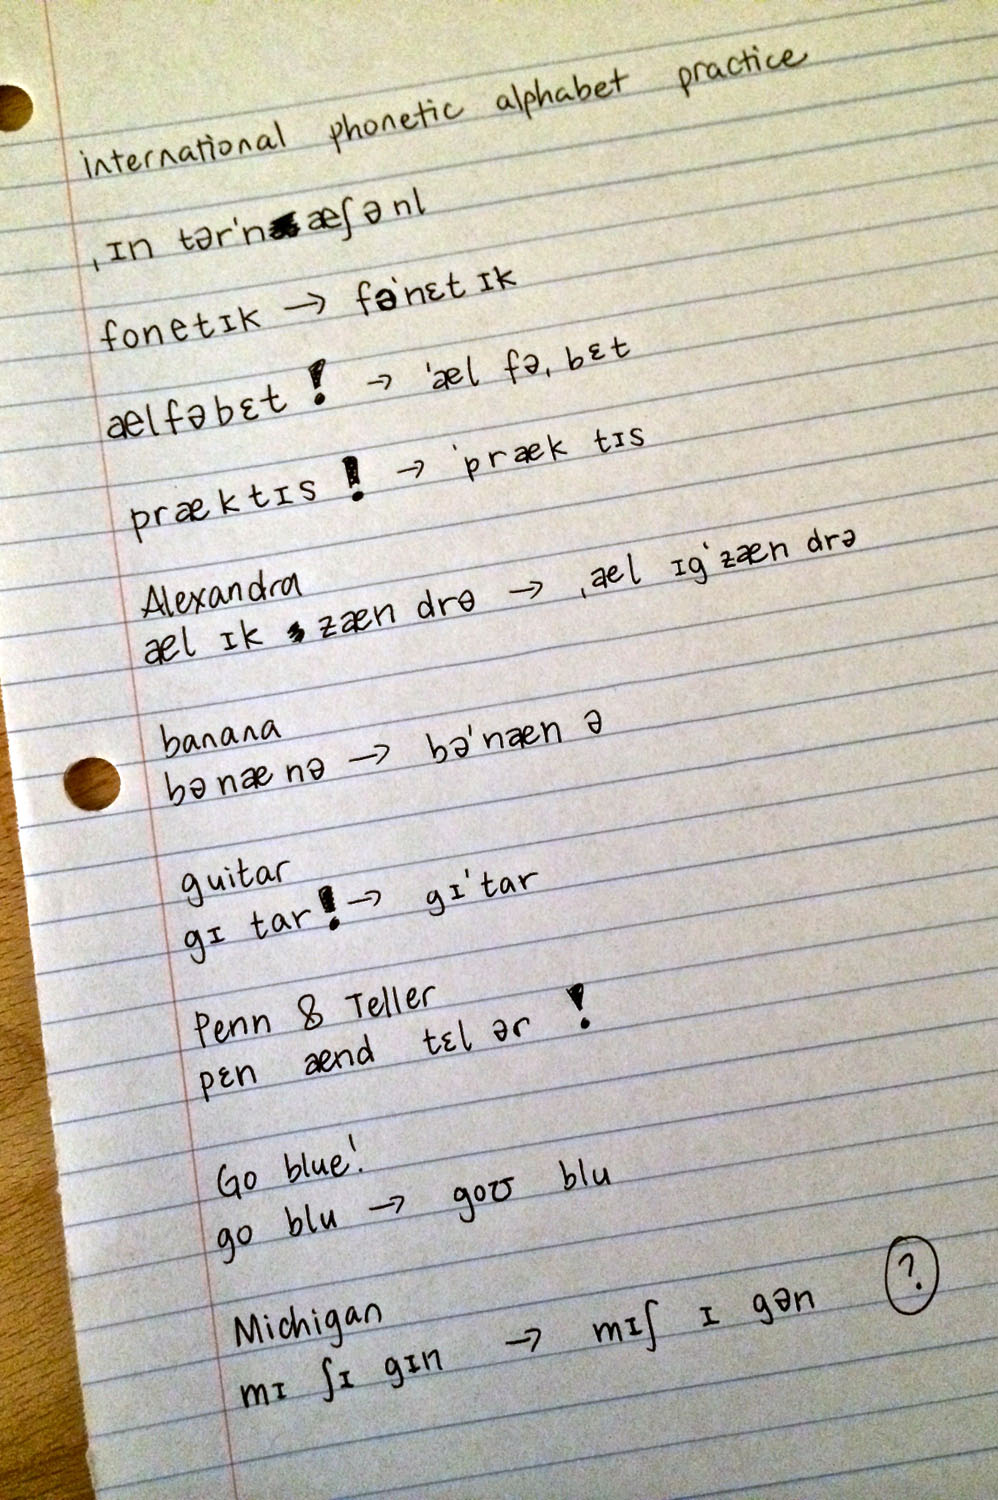 international phonetic alphabet practice
ˌɪn tər'næʃənl
fonetɪk → fə'nɛtɪk
ælfəbɛt! → 'æl fəˌbɛt
præktɪs! → 'præk tɪs
Alexandra
æl ɪk zæn drə → ˌæl ɪg'zæn drə
banana
bə næ nə → bə'næn ə
guitar
gɪ tar! → gɪ'tar
Penn & Teller
pɛn ænd tɛl ər !
Go blue!
go blu → goʊ blu
Michigan
mɪ ʃɪ gɪn → mɪʃ ɪ gən ?